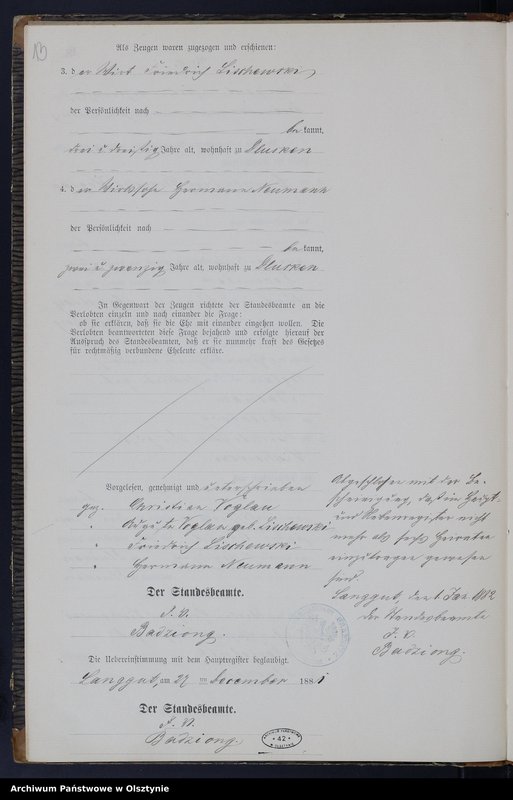 13
Als Zeugen waren zugezogen und erschienen:
3. der Wirt Friedrich Lischewski
der Persönlichkeit nach
be kannt,
drei u dreißig Jahre alt, wohnhaft zu Dlusken
4. der Wirthssohn Hermann Neumann
der Persönlichkeit nach
be kannt,
zwei u zwanzig Jahre alt, wohnhaft zu Dlusken
In Gegenwart der Zeugen richtete der Standesbeamte an die
Verlobten einzeln und nach einander die Frage:
ob sie erklären, daß sie die Ehe mit einander eingehen wollen. Die
Verlobten beantworteten diese Frage bejahend und erfolgte hierauf der
Ausspruch des Standesbeamten, daß er sie nunmehr kraft des Gesetzes
für rechtmäßig verbundene Eheleute erkläre.
Vorgelesen, genehmigt und unterschrieben
gez. Christian Voglau
" Auguste Voglau geb. Lischewski
" Friedrich Lischewski
" Hermann Neumann
Der Standesbeamte.
I. V.
Badziong.
Die Uebereinstimmung mit dem Hauptregister beglaubigt.
Langgut, am 27 ten December 1881
Der Standesbeamte.
I. V.
Badziong.
Abgeschlossen mit der Be-
scheinigung, daß im Haupt-
und Nebenregister nicht
mehr als sechs Heirathen
einzutragen gewesen
sind.
Langgut, den 1 Jan 1882
Der Standesbeamte
I. V.
Badziong.
ARCHIWUM PAŃSTWOWE
42
W OLSZTYNIE
Archiwum Państwowe w Olsztynie